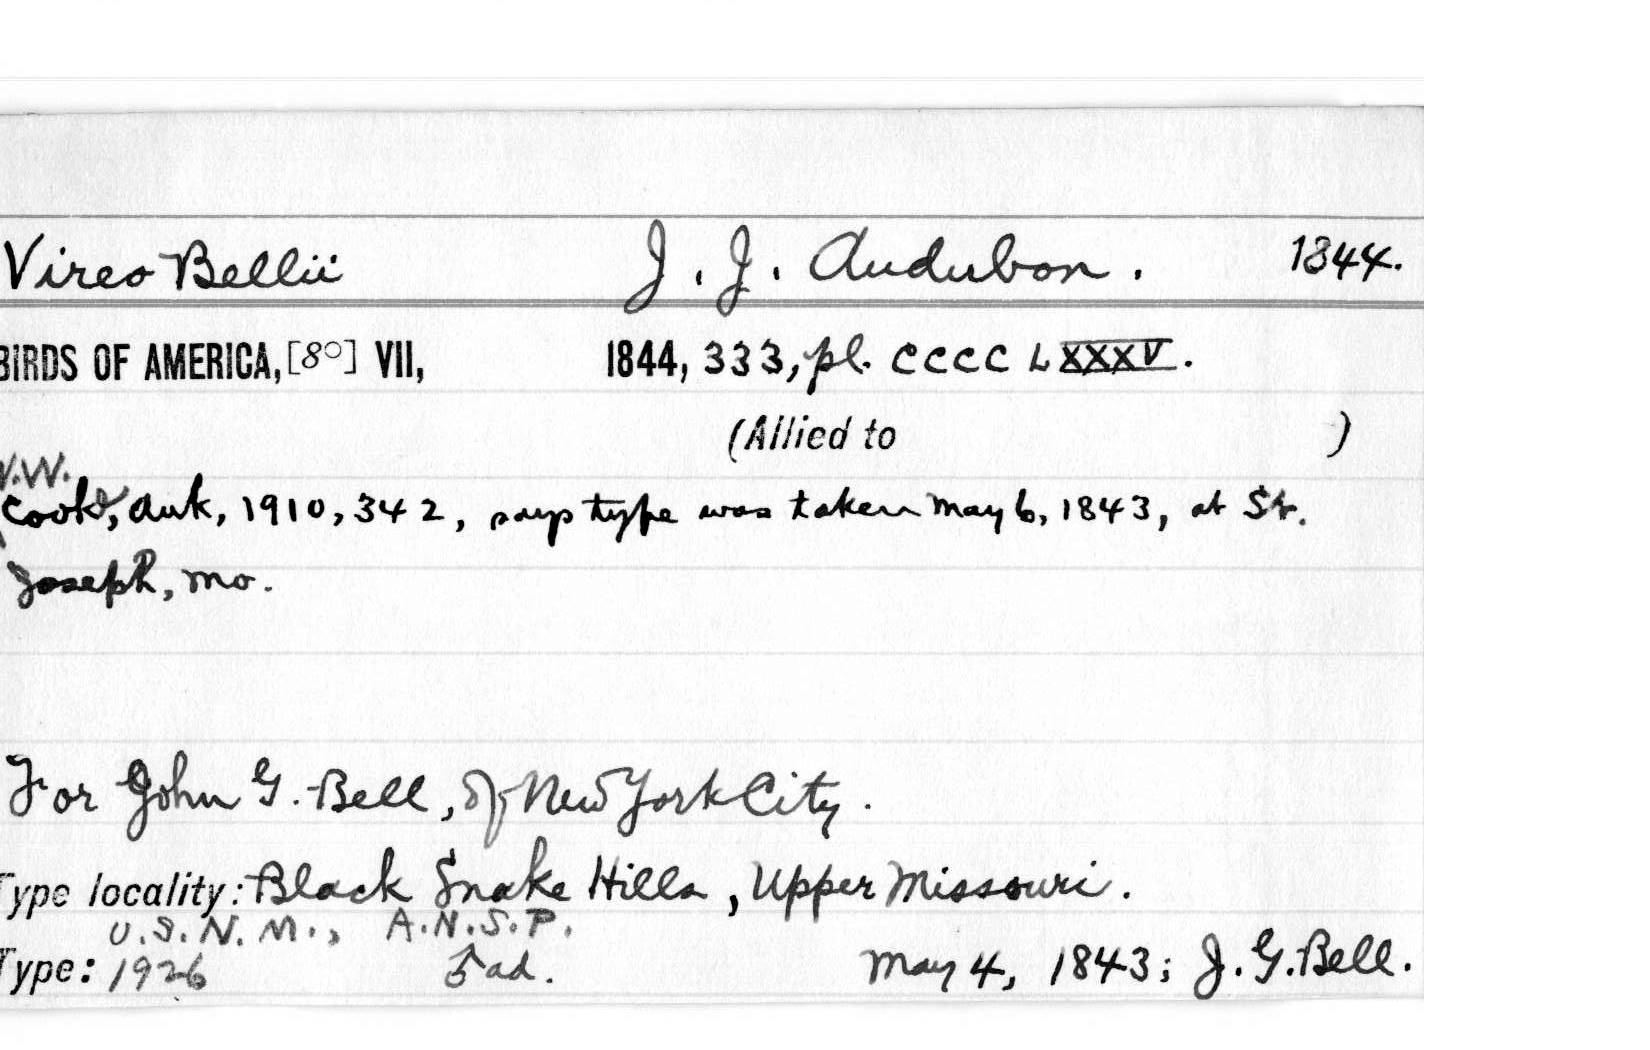 Vireo Bellii J. J. Audubon. 1844.
BIRDS OF AMERICA, [8°] VII, 1844, 333, pl. CCCC LXXXV.
(Allied to )
W.W.
Cooke, Auk, 1910, 342, says type was taken May 6, 1843, at St.
Joseph, Mo.
For John G. Bell, of New York City.
Type locality: Black Snake Hills, Upper Missouri.
U.S.N.M., A.N.S.P.
Type: 1926 ♂ ad. May 4, 1843; J. G. Bell.